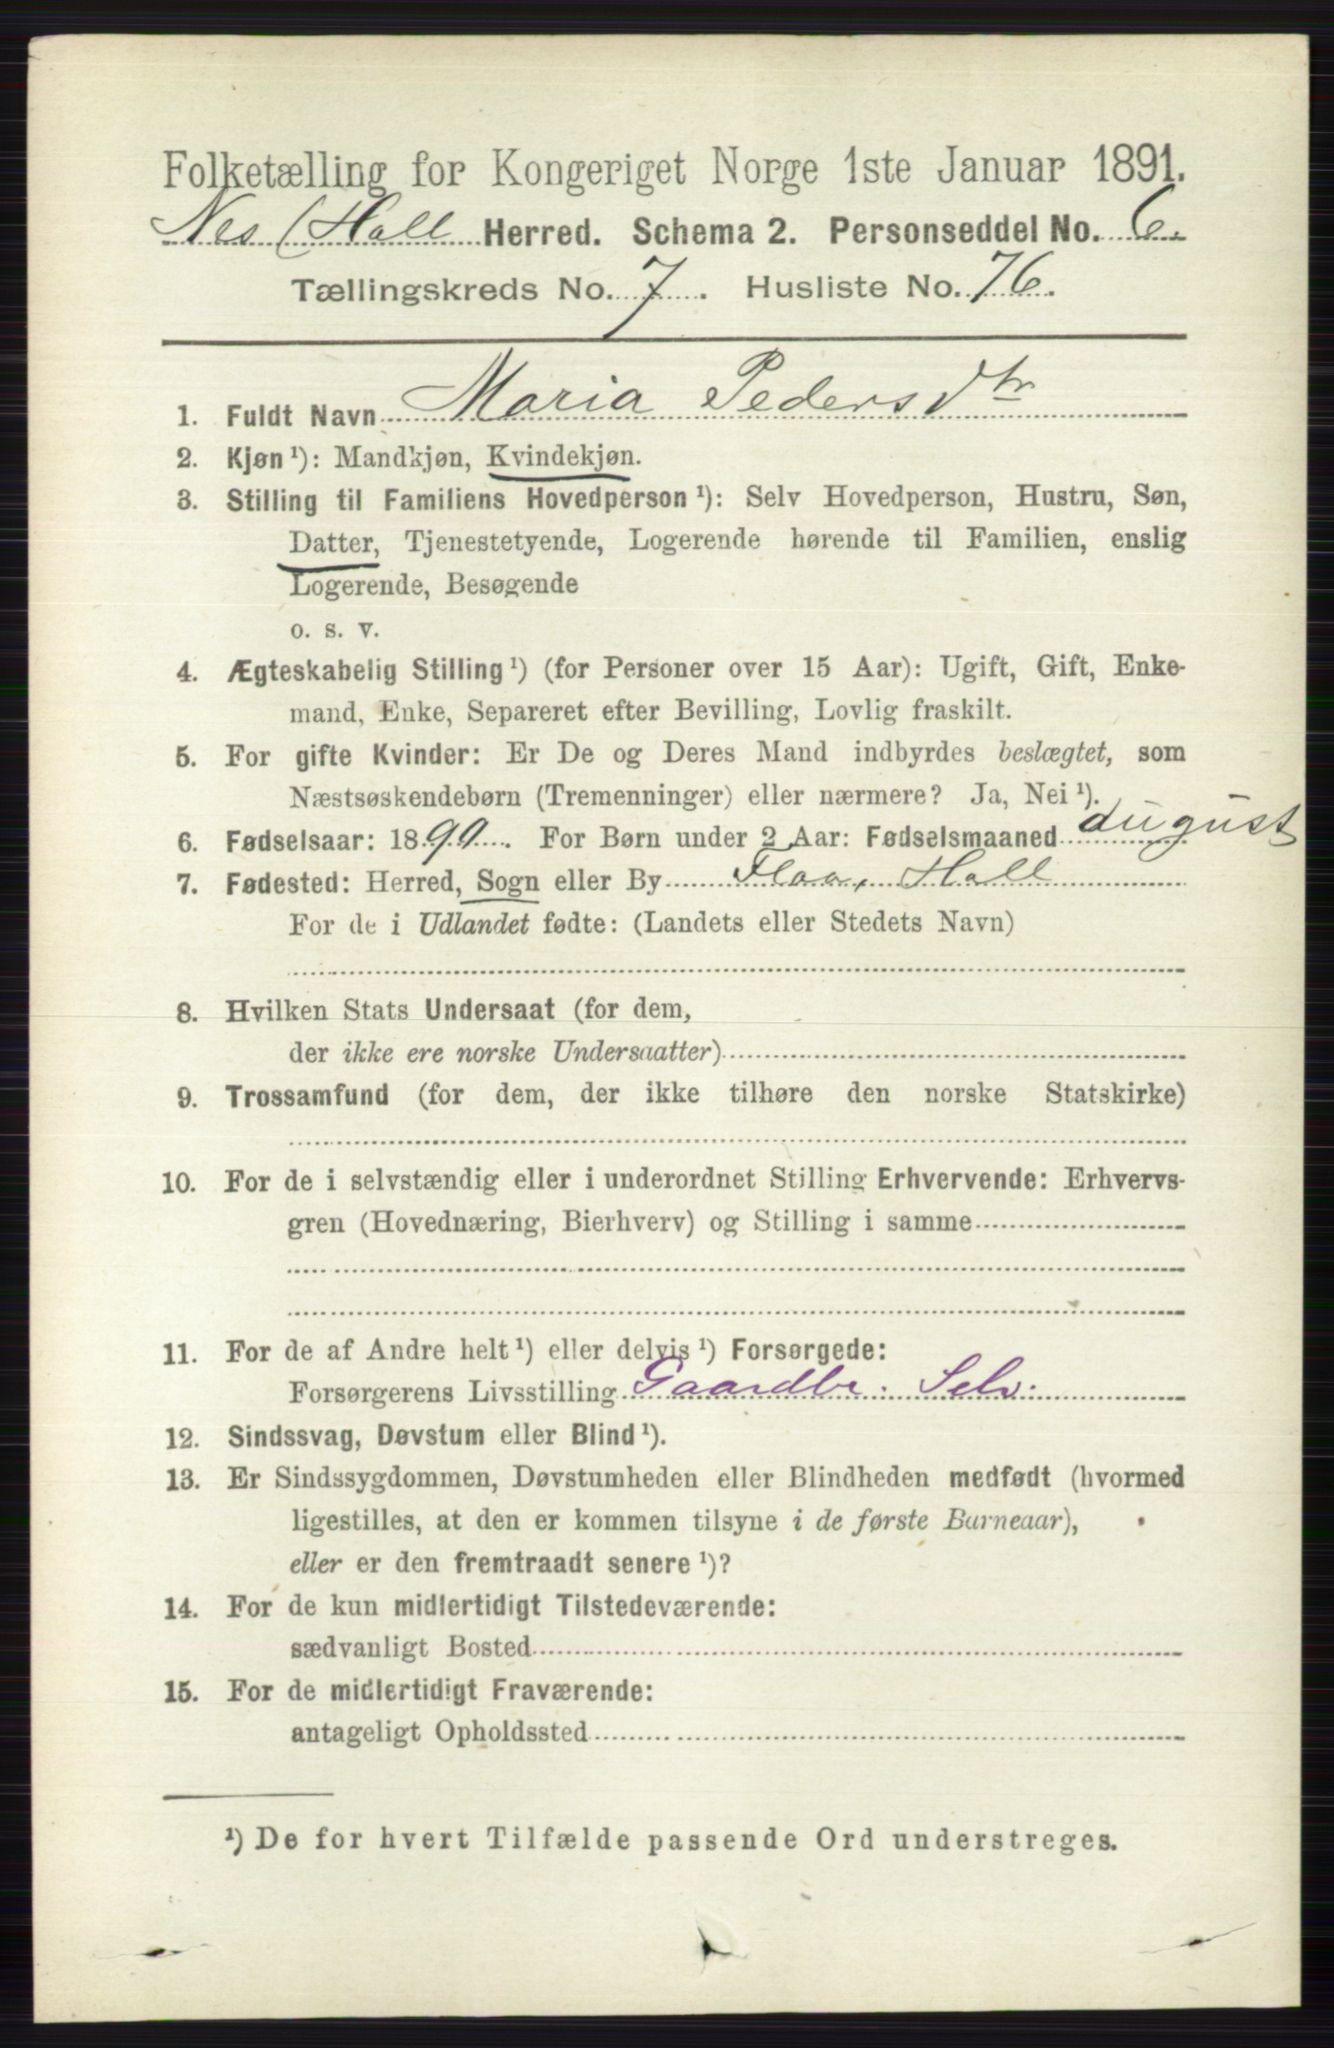 Folketælling for Kongeriget Norge 1ste Januar 1891.
Nes (Hall Herred. Schema 2. Personseddel No. 6.
Tællingskreds No. 7. Husliste No. 76.
1. Fuldt Navn Maria Pedersdtr
2. Kjøn ¹): Mandkjøn, Kvindekjøn.
3. Stilling til Familiens Hovedperson ¹): Selv Hovedperson, Hustru, Søn,
Datter, Tjenestetyende, Logerende hørende til Familien, enslig
Logerende, Besøgende
o. s. v.
4. Ægteskabelig Stilling ¹) (for Personer over 15 Aar): Ugift, Gift, Enke-
mand, Enke, Separeret efter Bevilling, Lovlig fraskilt.
5. For gifte Kvinder: Er De og Deres Mand indbyrdes beslægtet, som
Næstsøskendebørn (Tremenninger) eller nærmere? Ja, Nei ¹).
6. Fødselsaar: 1890. For Børn under 2 Aar: Fødselsmaaned august
7. Fødested: Herred, Sogn eller By Flaa, Hall
For de i Udlandet fødte: (Landets eller Stedets Navn)
8. Hvilken Stats Undersaat (for dem,
der ikke ere norske Undersaatter)
9. Trossamfund (for dem, der ikke tilhøre den norske Statskirke)
10. For de i selvstændig eller i underordnet Stilling Erhvervende: Erhvervs-
gren (Hovednæring, Bierhverv) og Stilling i samme
11. For de af Andre helt ¹) eller delvis ¹) Forsørgede:
Forsørgerens Livsstilling Gaardbr. Selv.
12. Sindssvag, Døvstum eller Blind ¹).
13. Er Sindssygdommen, Døvstumheden eller Blindheden medfødt (hvormed
ligestilles, at den er kommen tilsyne i de første Barneaar),
eller er den fremtraadt senere ¹)?
14. For de kun midlertidigt Tilstedeværende:
sædvanligt Bosted
15. For de midlertidigt Fraværende:
antageligt Opholdssted
¹) De for hvert Tilfælde passende Ord understreges.